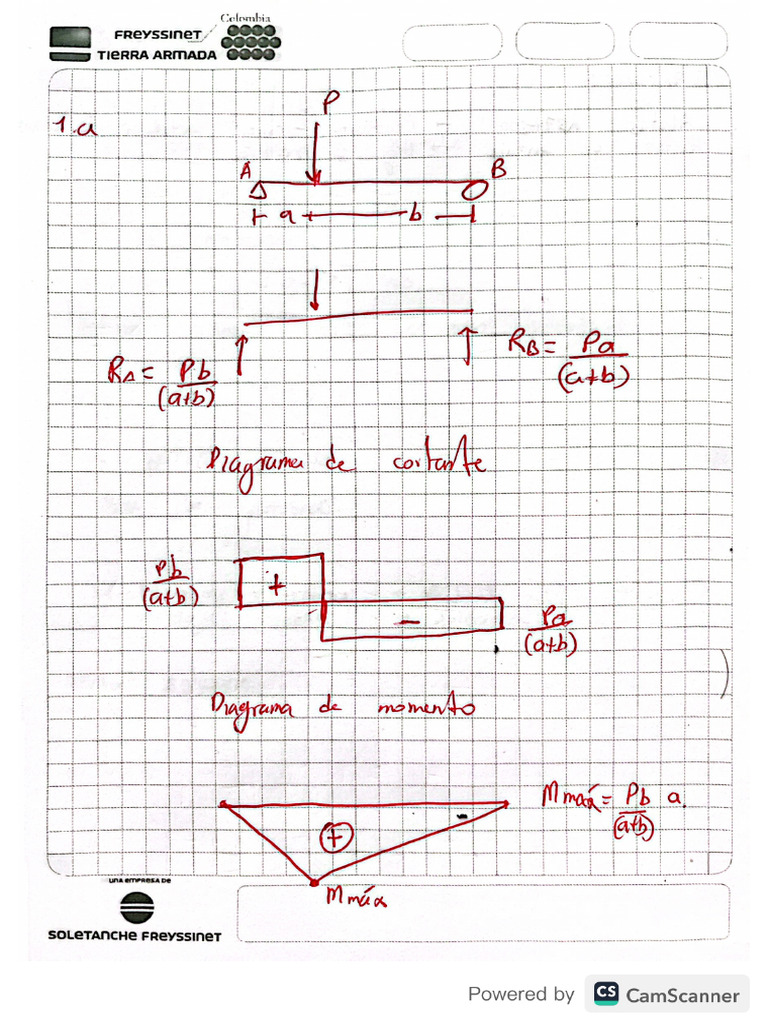 Colombia
FREYSSINET
TIERRA ARMADA
1.a
P
A B
a b
RA = Pb/(a+b)
RB = Pa/(a+b)
Diagrama de cortante
Pb/(a+b)
+
-
Pa/(a+b)
Diagrama de momento
Mmáx = Pb/(a+b) a.
+
Mmáx
UNA EMPRESA DE
SOLETANCHE FREYSSINET
Powered by CS CamScanner